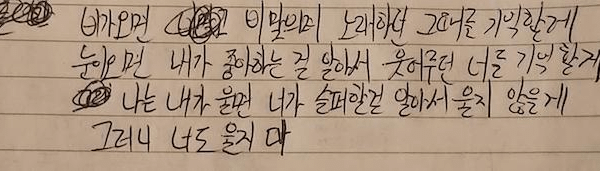 비가오면 비맞으며 노래하던 그때를 기억할게
눈이오면 내가 좋아하는 걸 알아서 웃어주던 너를 기억 할게
나는 내가 울면 너가 슬퍼할걸 알아서 울지 않을게
그러니 너도 울지 마